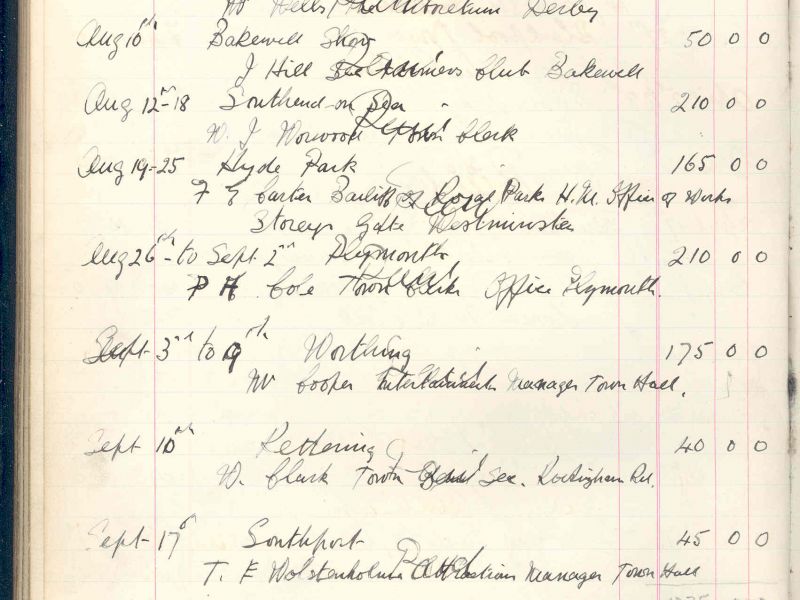 Mr Wells, The Arboretum Derby
Aug 10th Bakewell Show 50 0 0
J Hill Sec Farmers Club Bakewell
Aug 12th-18 Southend-on Sea 210 0 0
W. J Worwood Town Clerk
Aug 19-25 Hyde Park 165 0 0
F E Carter Bailiff of Royal Parks H.M. Office of Works
Storeys Gate Westminster
Aug 26th to Sept. 2nd Plymouth 210 0 0
P H Cole Town Clerks Office Plymouth.
Sept 3rd to 9th Worthing 175 0 0
Mr Cooper Entertainments Manager Town Hall.
Sept 10th Kettering 40 0 0
W. Clark Town Sec. Rockingham Rd.
Sept 17th Southport 45 0 0
T. E Wolstenholme Attractions Manager Town Hall